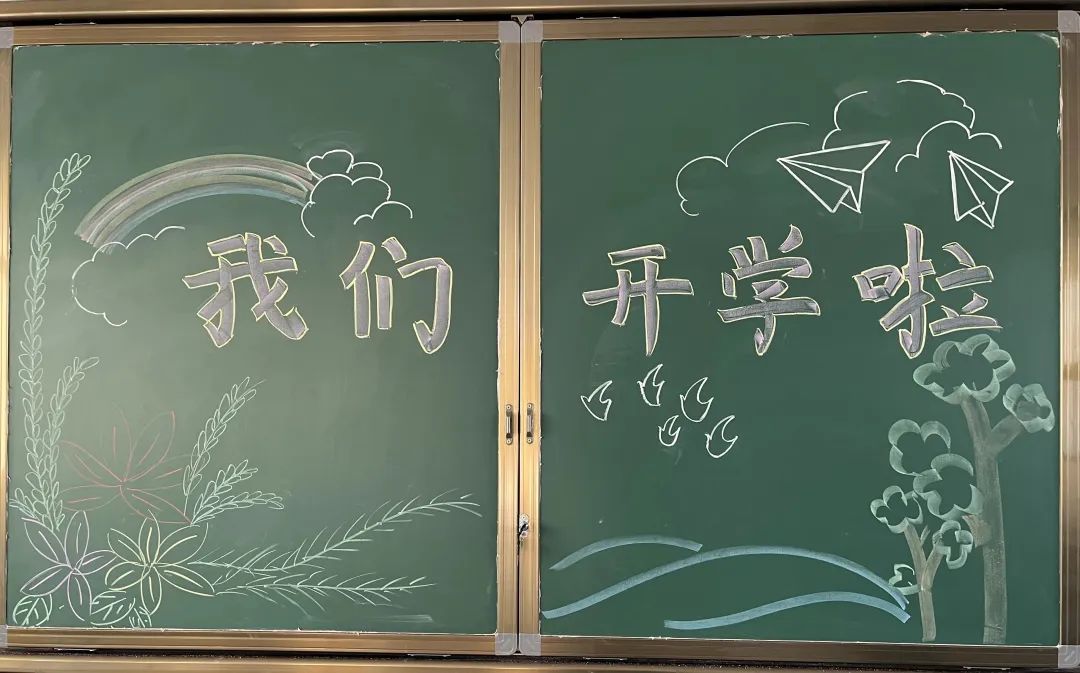 我们开学啦